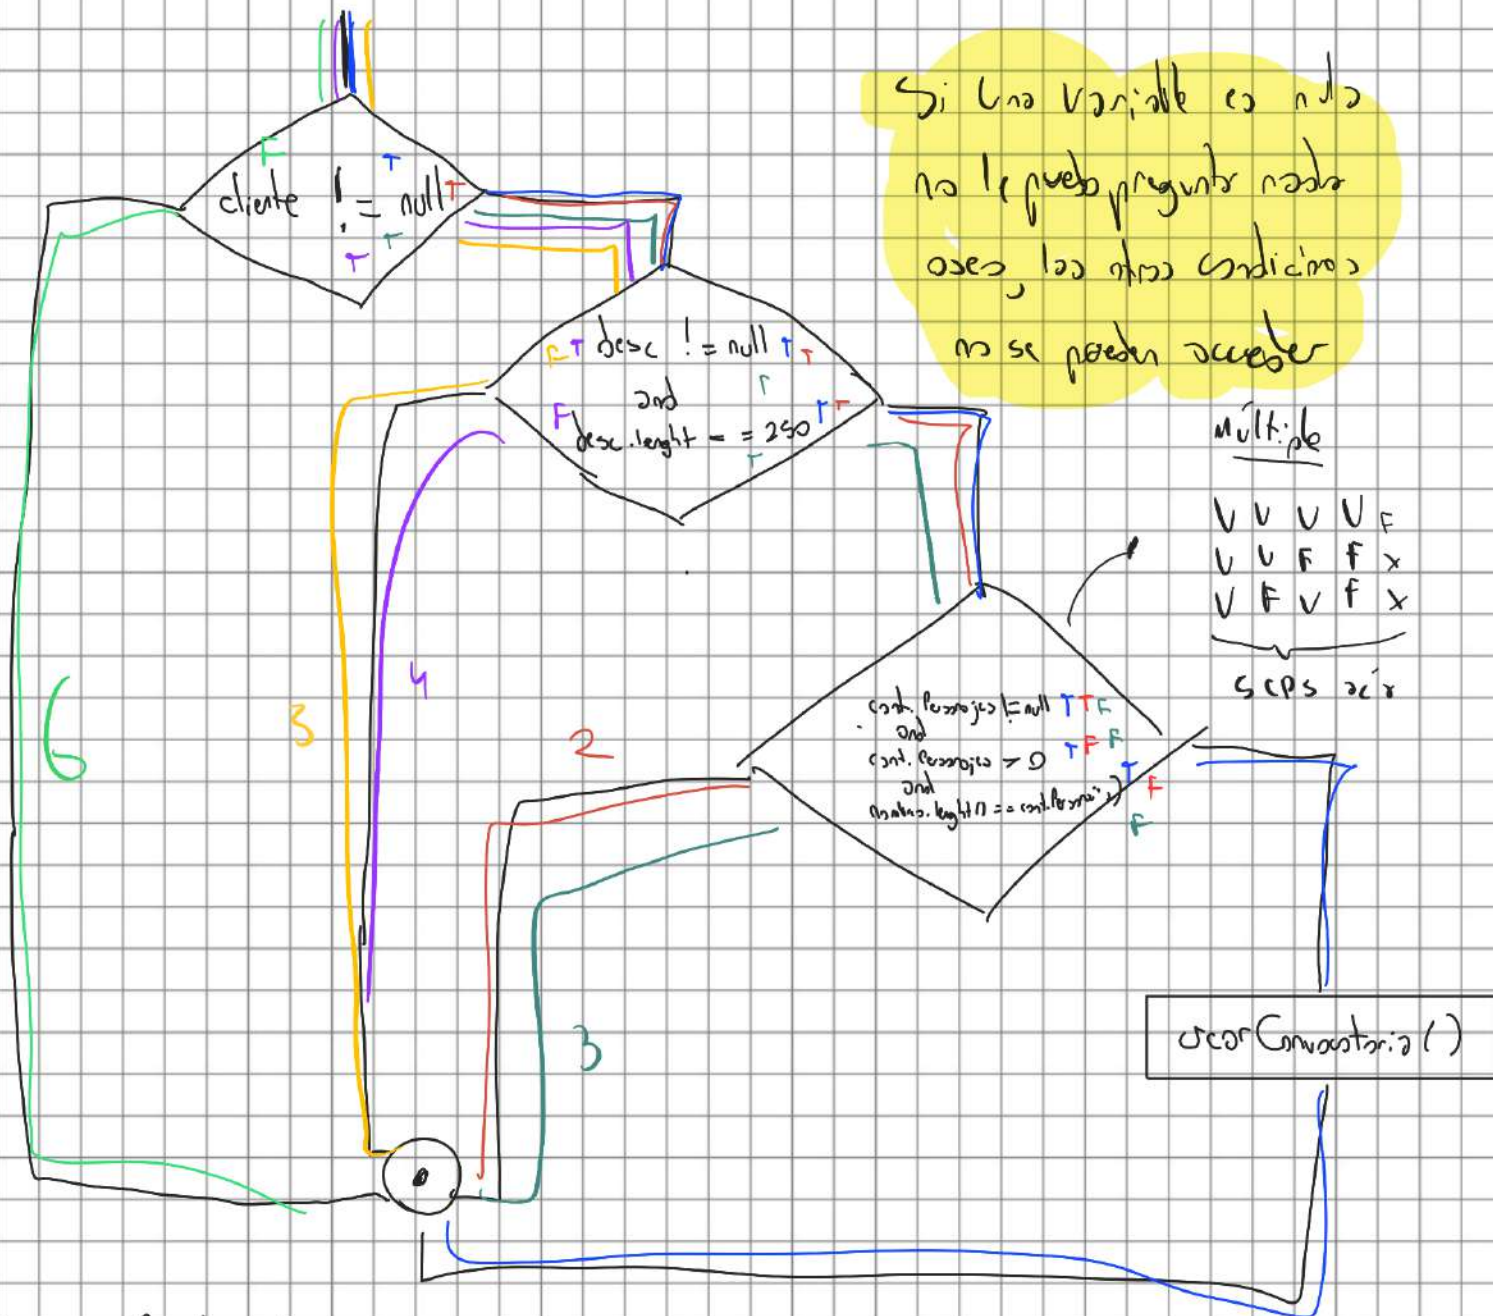 Si una variable es nula
no le puedo pregunta nada
osea, las otras condiciones
no se pueden acceder
F
T
cliente != null T
T
T
F T desc != null T T
T
and
F
T T
desc.lenght == 250
T
Múltiple
V V V V F
V V F F X
V F V F X
5 CPS
cant. Personajes != null T T F
and
cant. Personajes > 0 T F F
and
T F
F
6
3
4
2
3
crearConvocatoria()